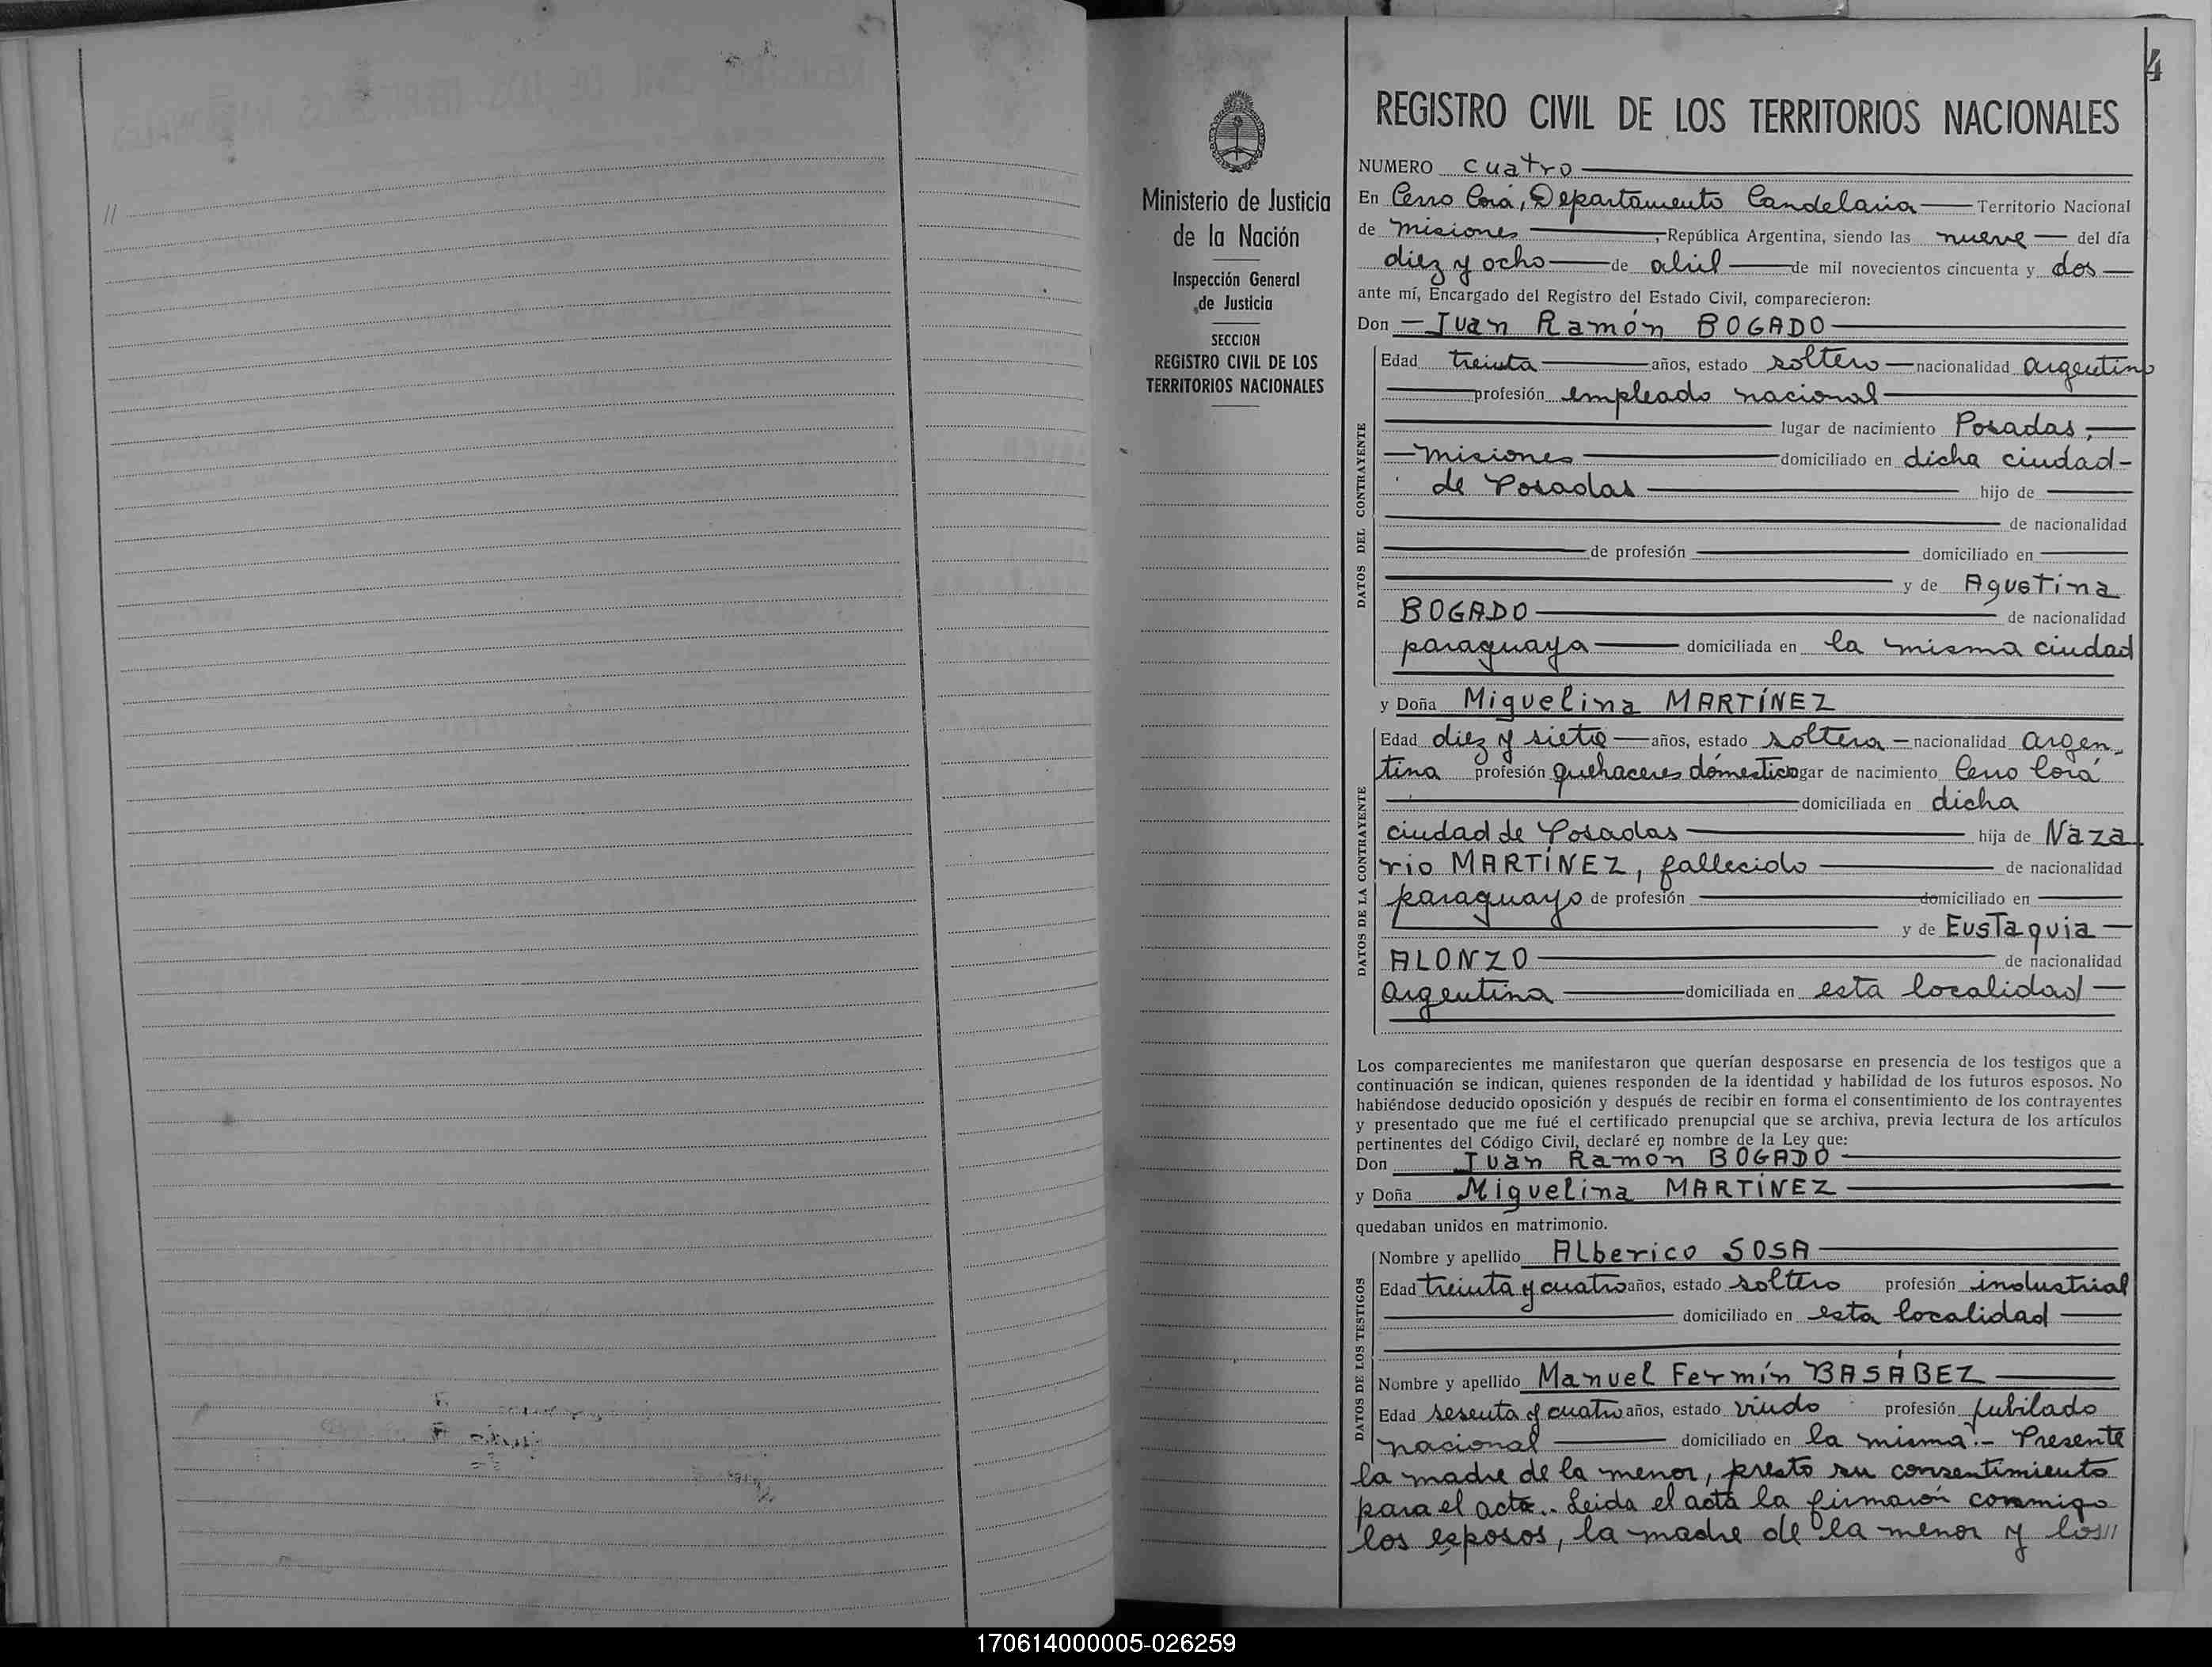 //
4
Ministerio de Justicia
de la Nación
Inspección General
de Justicia
SECCION
REGISTRO CIVIL DE LOS
TERRITORIOS NACIONALES
REGISTRO CIVIL DE LOS TERRITORIOS NACIONALES
NUMERO cuatro
En Cerro Corá, Departamento Candelaria Territorio Nacional
de Misiones, República Argentina, siendo las nueve del día
diez y ocho de abril de mil novecientos cincuenta y dos
ante mí, Encargado del Registro del Estado Civil, comparecieron:
Don Juan Ramón BOGADO
DATOS DEL CONTRAYENTE
Edad treinta años, estado soltero nacionalidad argentino
profesión empleado nacional
lugar de nacimiento Posadas,
Misiones domiciliado en dicha ciudad
de Posadas hijo de
de nacionalidad
de profesión domiciliado en
y de Agustina
BOGADO de nacionalidad
paraguaya domiciliada en la misma ciudad
y Doña Miguelina MARTÍNEZ
DATOS DE LA CONTRAYENTE
Edad diez y siete años, estado soltera nacionalidad argen-
tina profesión quehaceres domésticos lugar de nacimiento Cerro Corá
domiciliada en dicha
ciudad de Posadas hija de Naza
rio MARTÍNEZ, fallecido de nacionalidad
paraguayo de profesión domiciliado en
y de Eustaquia
ALONZO de nacionalidad
argentina domiciliada en esta localidad
Los comparecientes me manifestaron que querían desposarse en presencia de los testigos que a
continuación se indican, quienes responden de la identidad y habilidad de los futuros esposos. No
habiéndose deducido oposición y después de recibir en forma el consentimiento de los contrayentes
y presentado que me fué el certificado prenupcial que se archiva, previa lectura de los artículos
pertinentes del Código Civil, declaré en nombre de la Ley que:
Don Juan Ramón BOGADO
y Doña Miguelina MARTÍNEZ
quedaban unidos en matrimonio.
DATOS DE LOS TESTIGOS
Nombre y apellido Alberico SOSA
Edad treinta y cuatro años, estado soltero profesión industrial
domiciliado en esta localidad
Nombre y apellido Manuel Fermín BASÁBEZ
Edad sesenta y cuatro años, estado viudo profesión jubilado
nacional domiciliado en la misma.- Presente
la madre de la menor, prestó su consentimiento
para el acto.. Leida el acta la firmaron conmigo
los esposos, la madre de la menor y los//
170614000005-026259